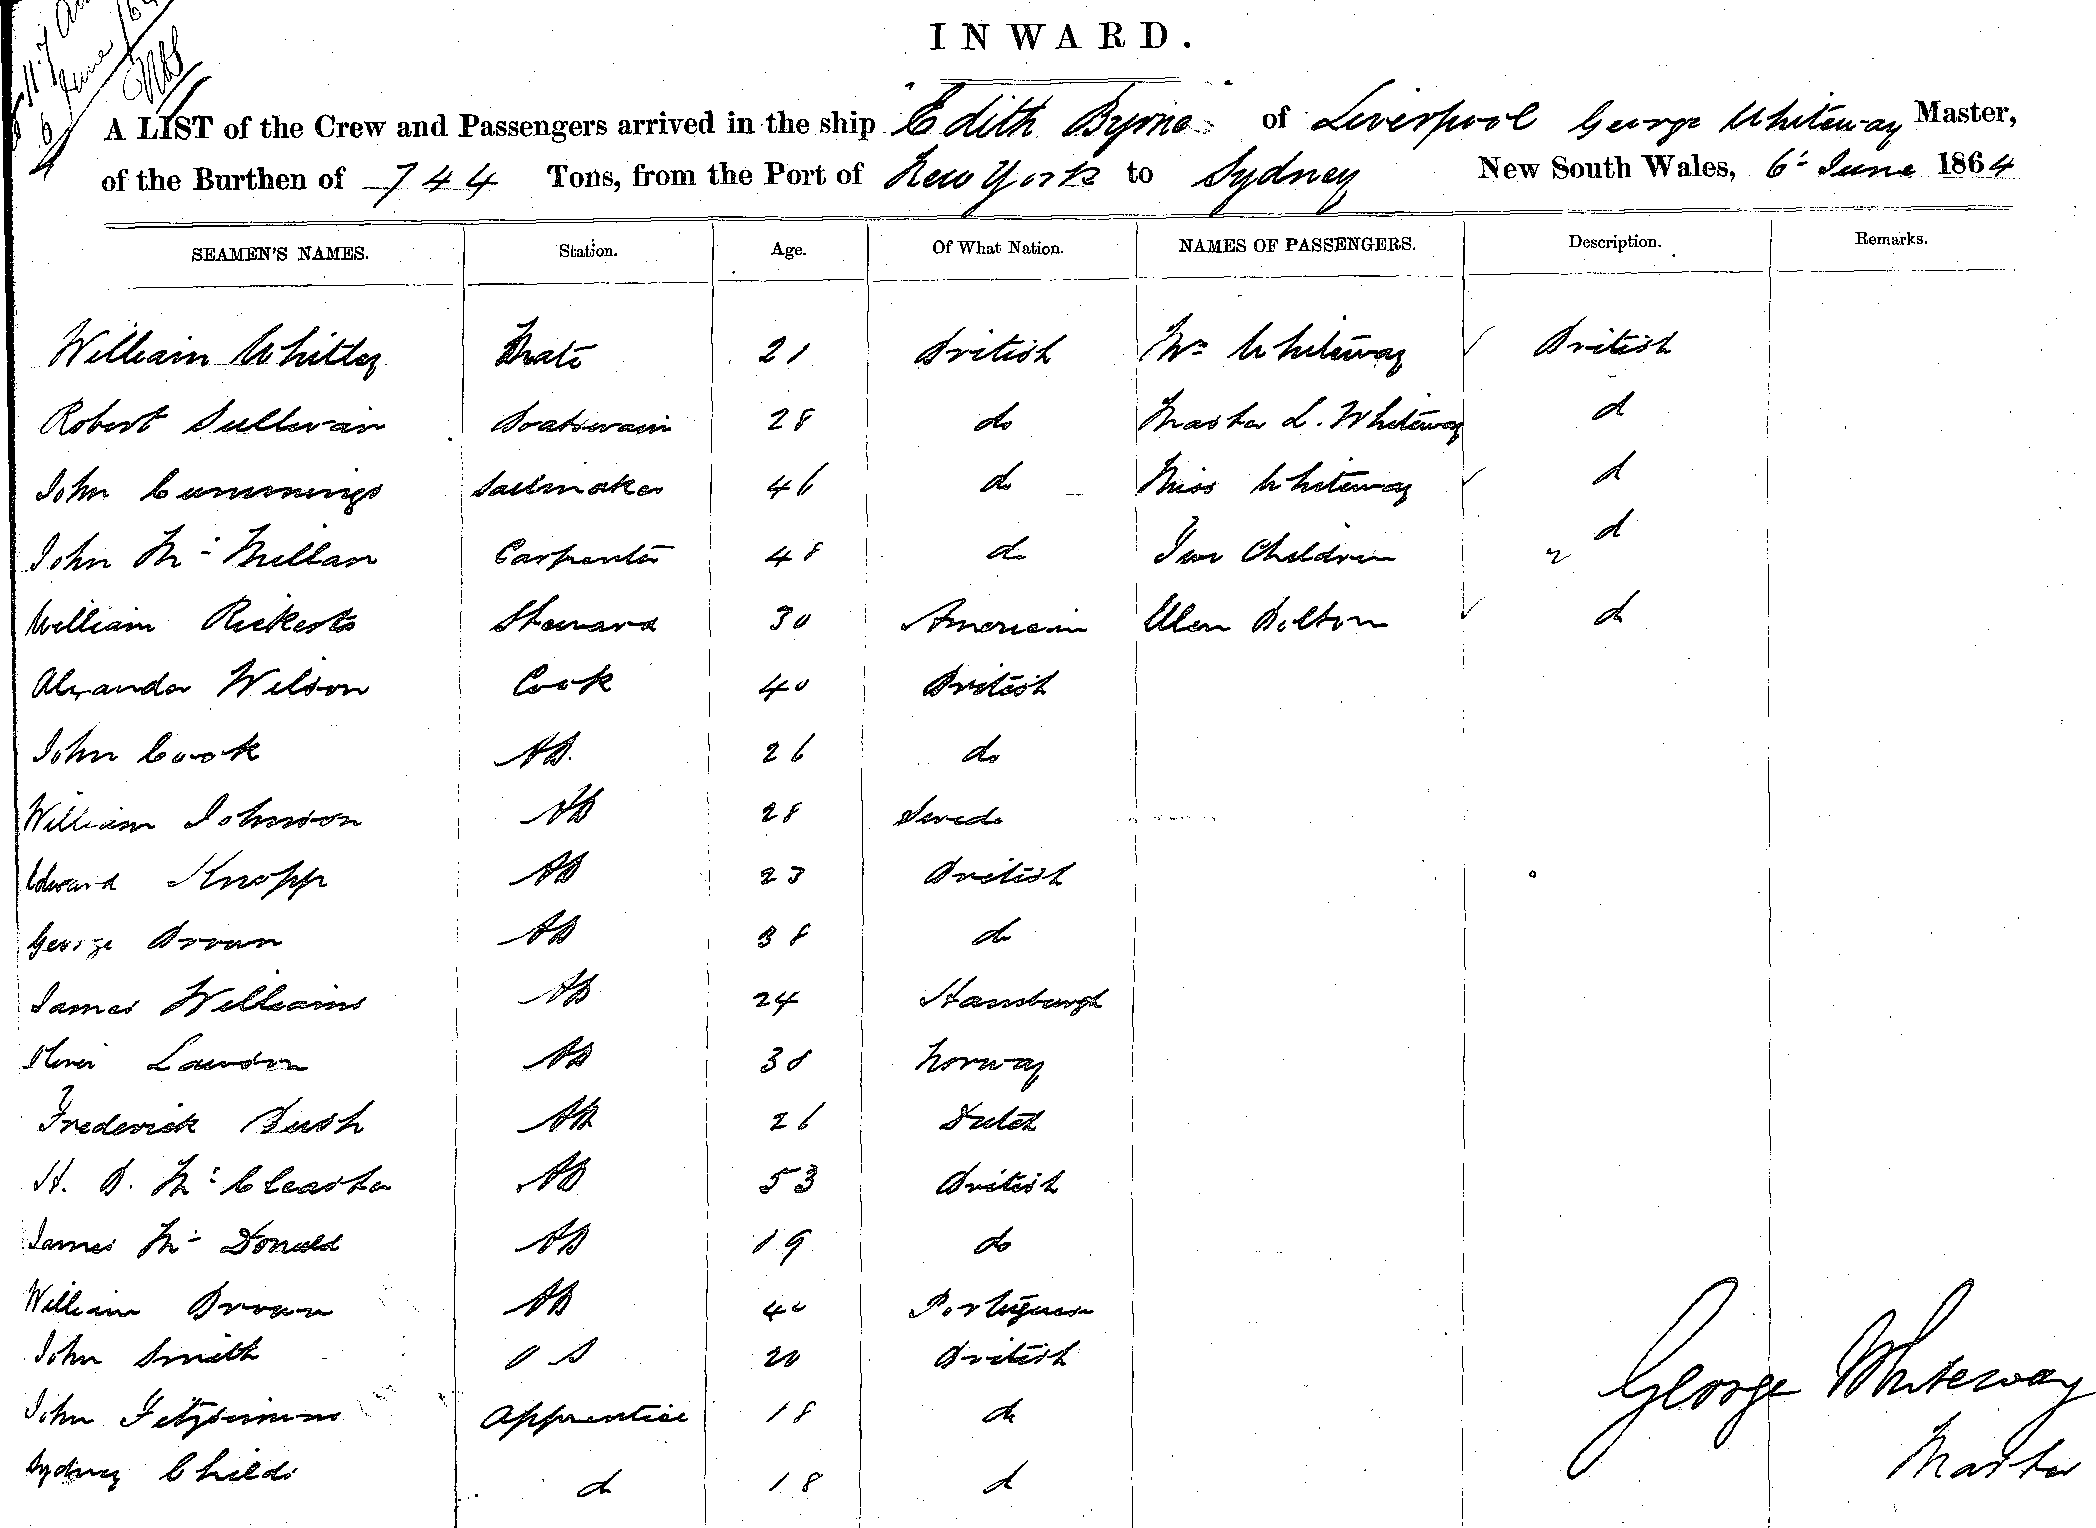 INWARD.
A LIST of the Crew and Passengers arrived in the ship "Edith Byrne" of Liverpool George Whiteway Master,
of the Burthen of 744 Tons, from the Port of New York to Sydney New South Wales, 6 June 1864
SEAMEN'S NAMES. Station. Age. Of What Nation. NAMES OF PASSENGERS. Description. Remarks.
William Whitley Mate 21 British Mrs Whiteway British
Robert Sullivan Boatswain 28 do Master L. Whiteway d
John Cummings Sailmaker 46 do Miss Whiteway d
John Mc Millan Carpenter 48 do Two Children 2 d
William Rickerts Steward 30 American Ellen Bolton d
Alexander Wilson Cook 40 British
John Cook AB. 26 do
William Johnson AB 28 Swede
Edward Knopp AB 23 British
George Brown AB 38 do
James Williams AB 24 Hamburgh
Oliver Lawson AB 30 Norway
Frederick Bush AB 26 Dutch
H. B. Mc Cleaster AB 53 British
James Mc Donald AB 19 do
William Brown AB 40 Portuguese
John Smith O S 20 British
John Fitzsimmons Apprentice 18 do
Sydney Childs d 18 d
George Whiteway
Master